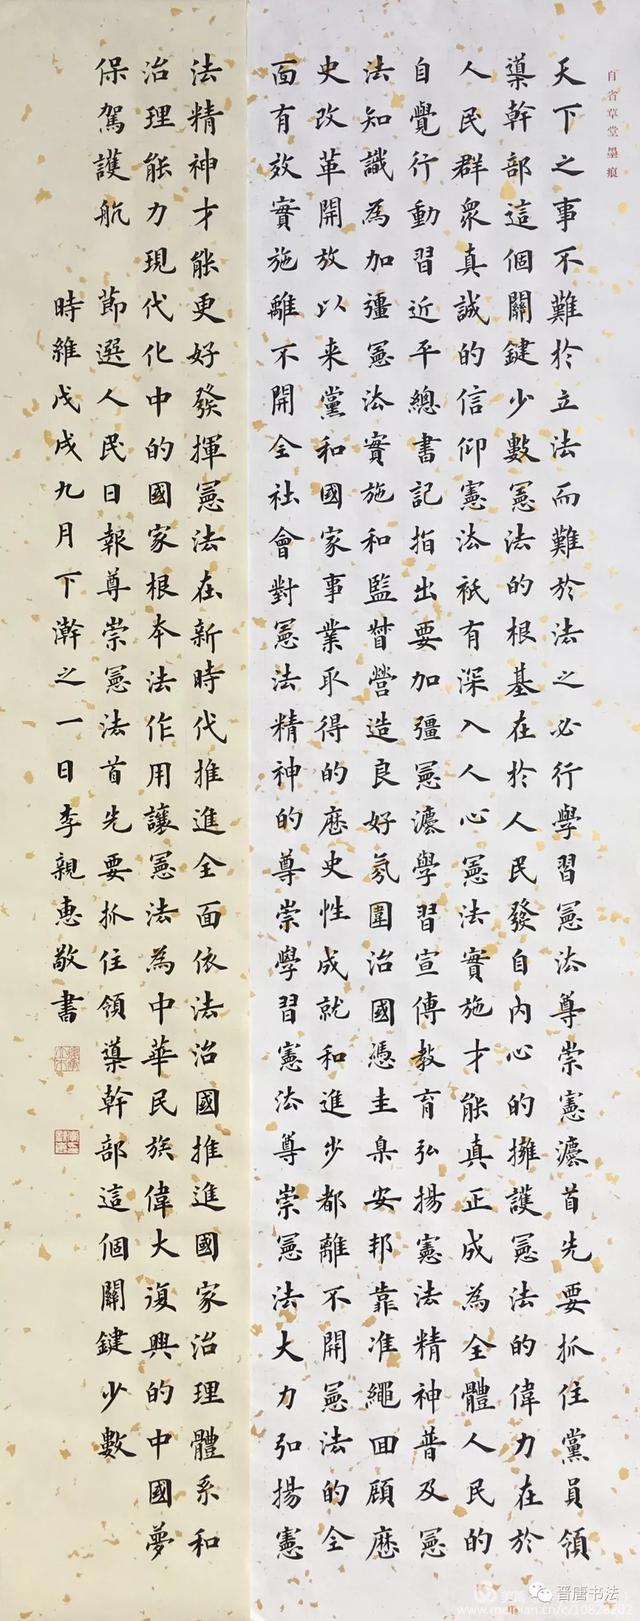 自省草堂墨痕
天下之事不難於立法而難於法之必行學習憲法尊崇憲灋首先要抓住黨員領
導幹部這個關鍵少數憲法的根基在於人民發自內心的擁護憲法的偉力在於
人民群衆真誠的信仰憲法祇有深入人心憲法實施才能真正成為全體人民的
自覺行動習近平總書記指出要加彊憲灋學習宣傳教育弘揚憲法精神普及憲
法知識為加彊憲法實施和監督營造良好氛圍治國憑圭臬安邦靠准繩回顧歷
史改革開放以来黨和國家事業取得的歷史性成就和進步都離不開憲法的全
面有效實施離不開全社會對憲法精神的尊崇學習憲法尊崇憲法大力弘揚憲
法精神才能更好發揮憲法在新時代推進全面依法治國推進國家治理體系和
治理能力現代化中的國家根本法作用讓憲法為中華民族偉大復興的中國夢
保駕護航 節選人民日報尊崇憲法首先要抓住領導幹部這個關鍵少數
時維戊戌九月下澣之一日李親惠敬書
晋唐书法